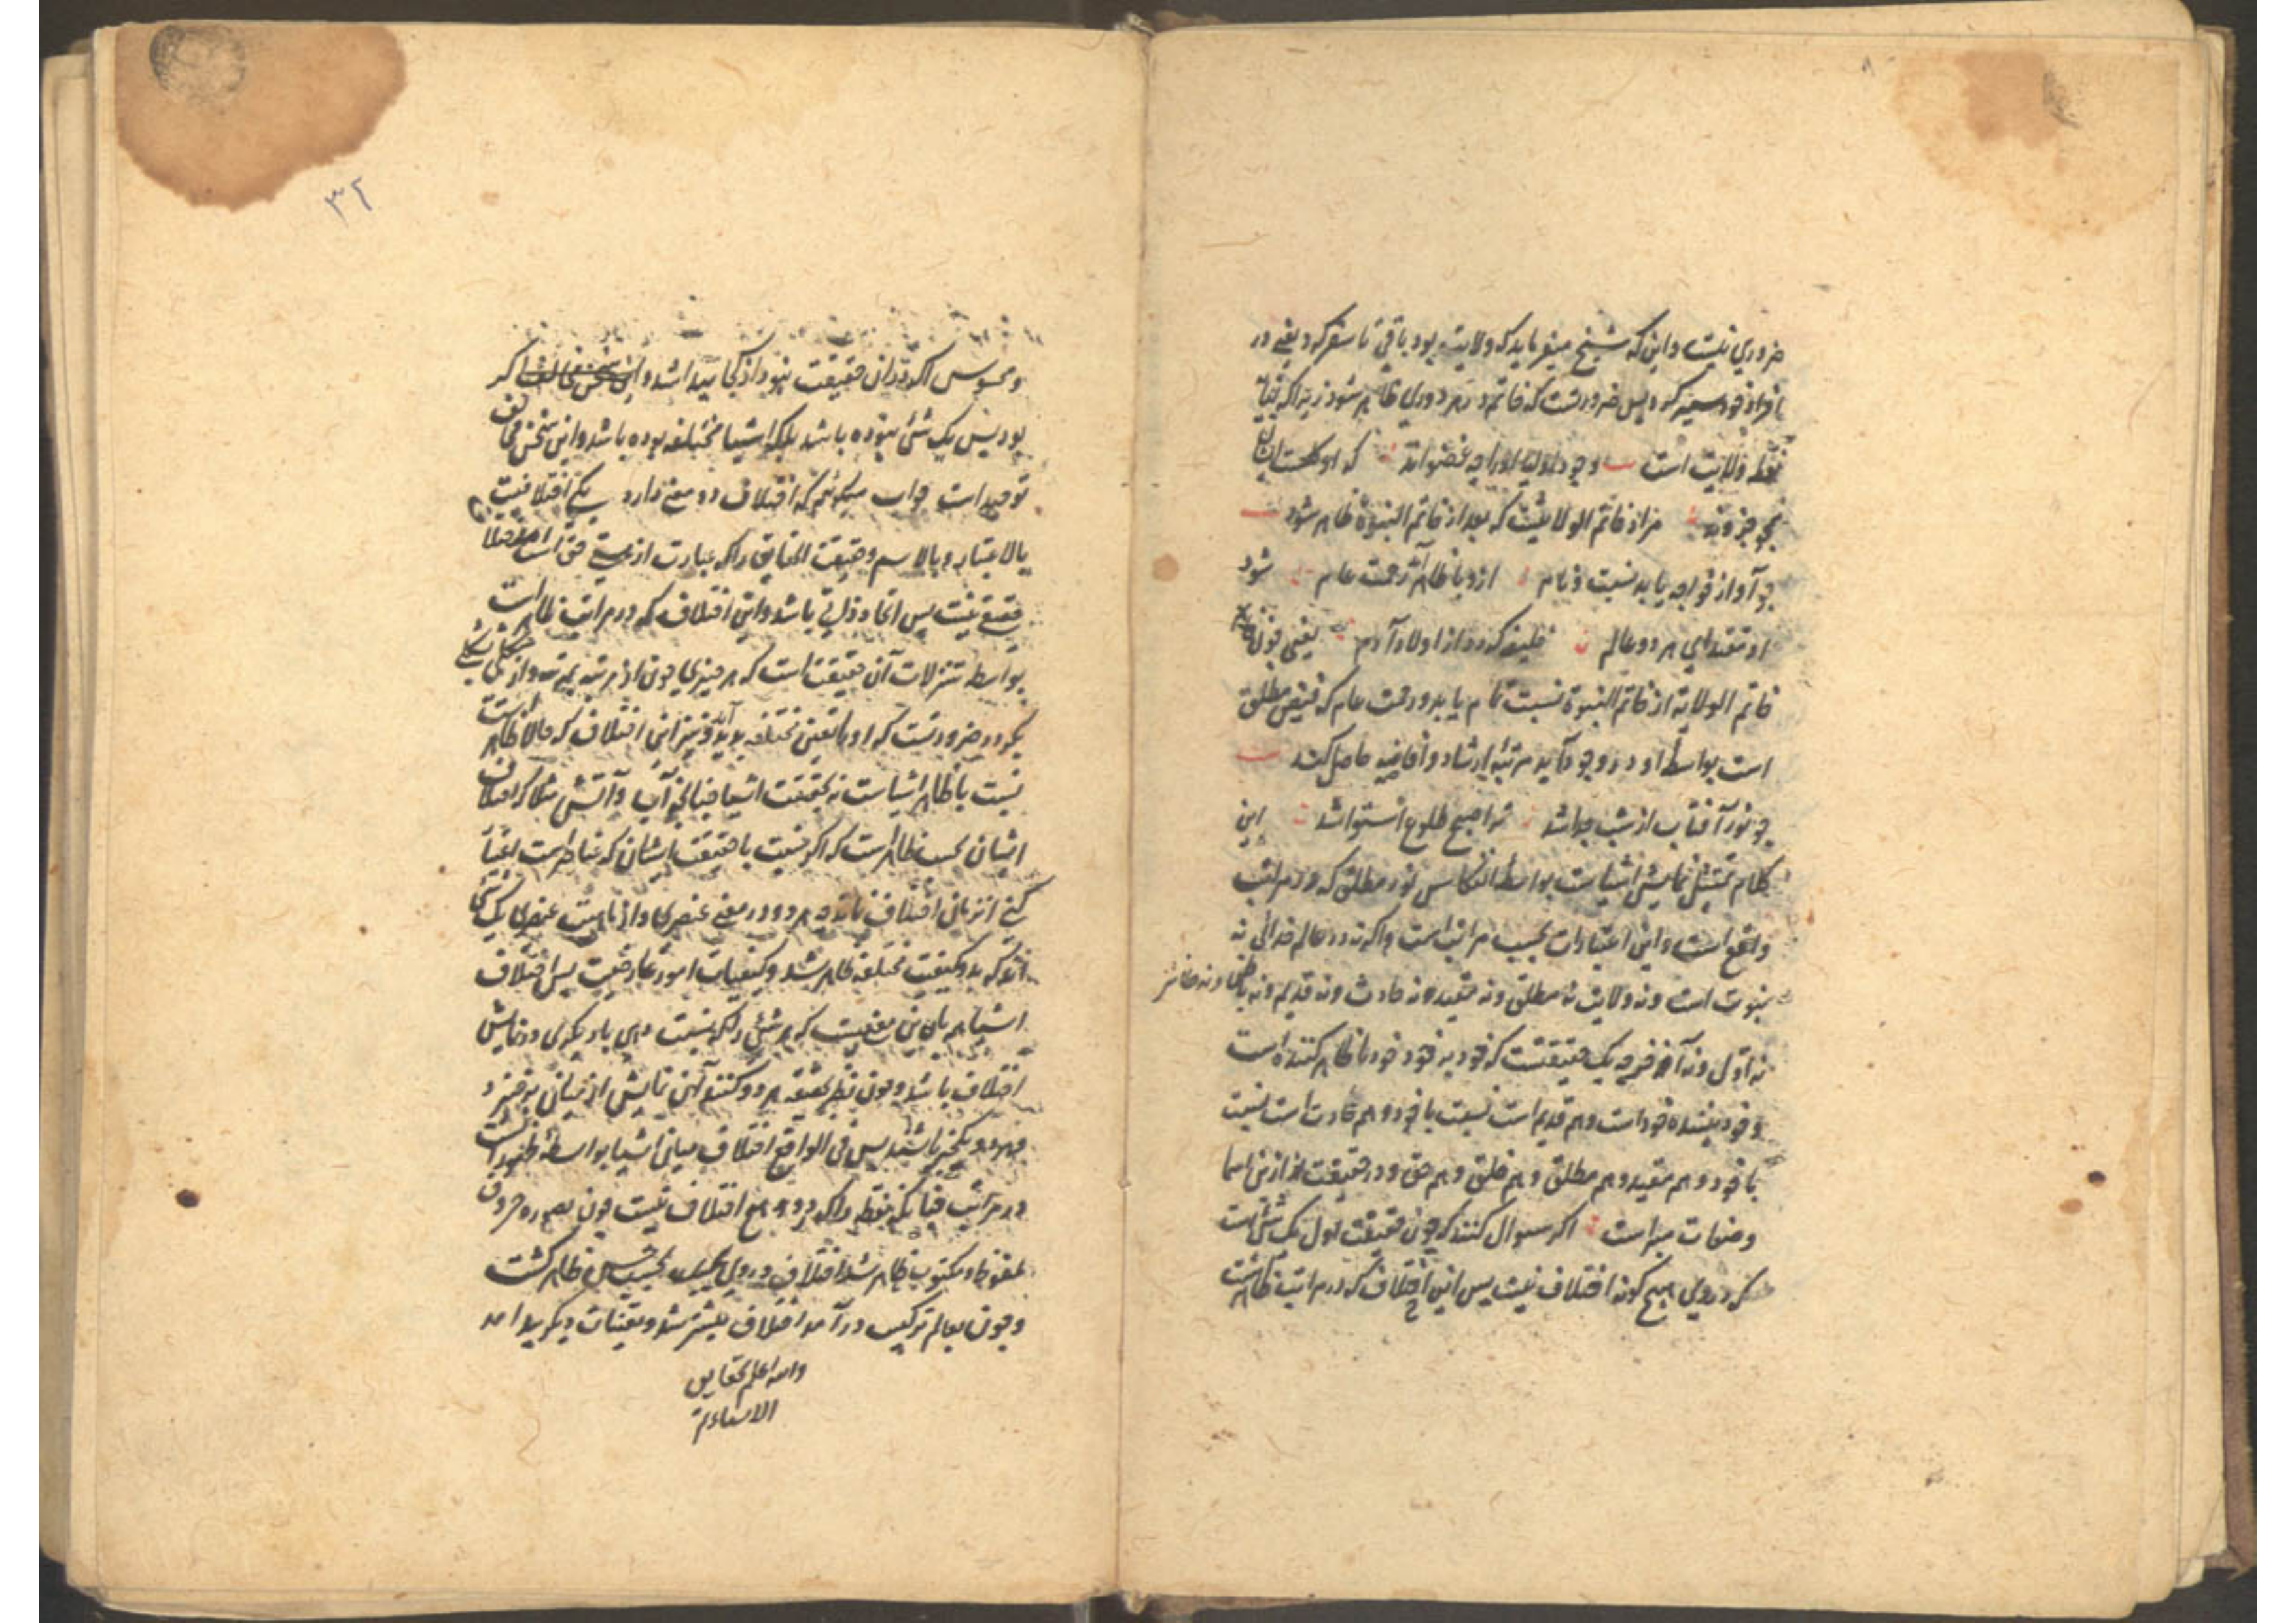 ضروري نیست واین که شیخ میفرماید که ولایت بود باقی تا سفر کرد یعنی در
افراد خود سیر کرد پس ضرورتست که خاتم در هر دوری ظاهر شود زیرا که
نقطه ولایت است وجود اولیا او را چو عضواند که او کلست ایشان
همچو جزوند مراد خاتم الولایتست که بعد از خاتم النبوة ظاهر شود
چو آو از خواجه یابد نسبت تام ازو با ظاهر آید رحمت عام شود
او مقتدای هر دو عالم خلیفه گردد از اولاد آدم یعنی چون
خاتم الولایة از خاتم النبوة نسبت تام یابد ورحمت عام که فیض مطلق
است بواسطهٔ او در وجود آید مرتبهٔ ارشاد وافاضه حاصل کند
چو نور آفتاب از شب جدا شد ترا صبح طلوع استوا شد این
کلام تمثیل نمایش اشیاست بواسطه انعکاس نور مطلق که در مراتب
واقع است واین اعتبارات بحسب مراتب است واگر نه در عالم خدائی نه
نبوت است ونه ولایت نه مطلق ونه مقید ونه حادث ونه قدیم ونه باطن ونه ظاهر
نه اول ونه آخر یک حقیقتست که خود بر خود خود را ظاهر کننده است
وخود بیننده خود است وهم قدیم است نسبت با خود وهم حادث است نسبت
با خود وهم مقید وهم مطلق وهم خلق وهم حق ودر حقیقت از این اسما
وصفات مبراست اگر سوال کنند که چون حقیقت اول یک شئ است
که در وی هیچ گونه اختلاف نیست پس این اختلاف که در مراتب ظاهرست
٣٢
ومحسوس اگر در آن حقیقت نبود از کجا پیدا شد واین سخن مخالف اگر
بود پس یک شئ نبوده باشد بلکه اشیا مختلفه بوده باشد واین سخن مخالف
توحید است جواب میگوئیم که اختلاف دو معنی دارد یکی اختلافیست
بالاعتبار وبالاسم وحقیقت الحقایق را که عبارت از هستی حق است
حقیقی نیست پس اتحاد ذاتی باشد واین اختلاف که در مراتب ظاهر است
بواسطه تنزلات آن حقیقت است که هر چیزی چون از مرتبه بمرتبه واز شکلی بشکلی
بگردد ضرورتست که او را تعین مختلفه پدید آید ونیز این اختلاف که حالا ظاهر است
نسبت با ظاهر اشیاست نه بحقیقت اشیا چنانچه آب وآتش مثلا که اختلاف
ایشان بحسب ظاهر است که اگر نسبت با حقیقت ایشان که عناصر است اعتبار
کنی از زمانی اختلاف نماند هر دو در معنی عنصری واز ماهیت عنصری یک شئ
اند که بدو کیفیت مختلفه ظاهر شد وکیفیات امور عارضیست پس اختلاف
اشیا هم باین معنیست که هر شئ را که نسبت دهی با دیگری در نمایش
اختلاف باشد وچون نظر بحقیقت هر دو کنند این نمایش از میان برخیزد
وهر دو یک چیز باشند پس فی الواقع اختلاف میان اشیا بواسطهٔ ظهور است
در مراتب چنانکه نقطه را که در او هیچ اختلاف نیست چون بصوره حروف
ملفوظ ومکتوب ظاهر شد اختلاف در وی بحسب حس ظاهر گشت
وچون بعالم ترکیب درآمد اختلاف بیشتر شد وتعینات دیگر پیدا آمد
والله اعلم بحقایق
الاشیاء